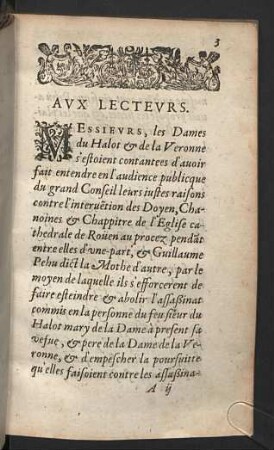 3
AVX LECTEVRS.
MESSIEVRS, les Dames
du Halot & de la Veronne
s'estoient contantees d'auoir
fait entendre en l'audience publicque
du grand Conseil leurs iustes raisons
contre l'interuẽtion des Doyen, Cha-
noines & Chappitre de l'Eglise ca-
thedrale de Roüen au procez pendãt
entre elles d'vne-part, & Guillaume
Pehu dict la Mothe d'autre, par le
moyen de laquelle ils s'efforcerent de
faire esteindre & abolir l'assaßinat
commis en la personne du feu sieur du
Halot mary de la Dame à present sa
vefue, & pere de la Dame de la Ve-
ronne, & d'empescher la poursuitte
qu'elles faisoient contre les assaßina-
A ij